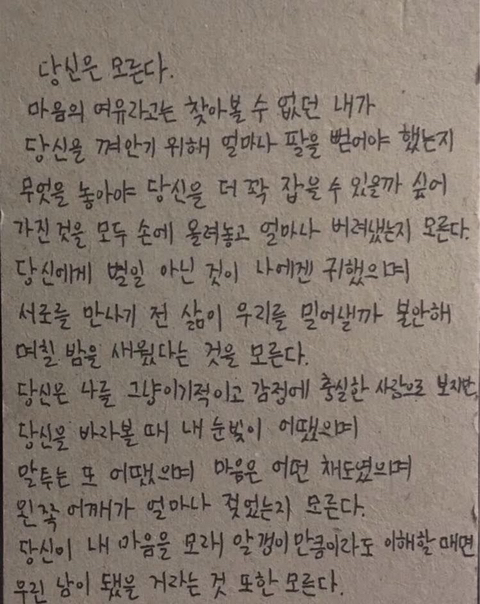 당신은 모른다.
마음의 여유라고는 찾아볼 수 없던 내가
당신을 껴안기 위해 얼마나 팔을 벋어야 했는지
무엇을 놓아야 당신을 더 꽉 잡을 수 있을까 싶어
가진 것을 모두 손에 올려놓고 얼마나 버려냈는지 모른다.
당신에게 별일 아닌 것이 나에겐 귀했으며
서로를 만나기 전 삶이 우리를 밀어낼까 불안해
며칠 밤을 새웠다는 것을 모른다.
당신은 나를 그냥 이기적이고 감정에 충실한 사람으로 보지만,
당신을 바라볼 때 내 눈빛이 어땠으며
말투는 또 어땠으며 마음은 어떤 채도였으며
왼쪽 어깨가 얼마나 젖었는지 모른다.
당신이 내 마음을 모래 알갱이만큼이라도 이해할 때면
우린 남이 됐을 거라는 것 또한 모른다.